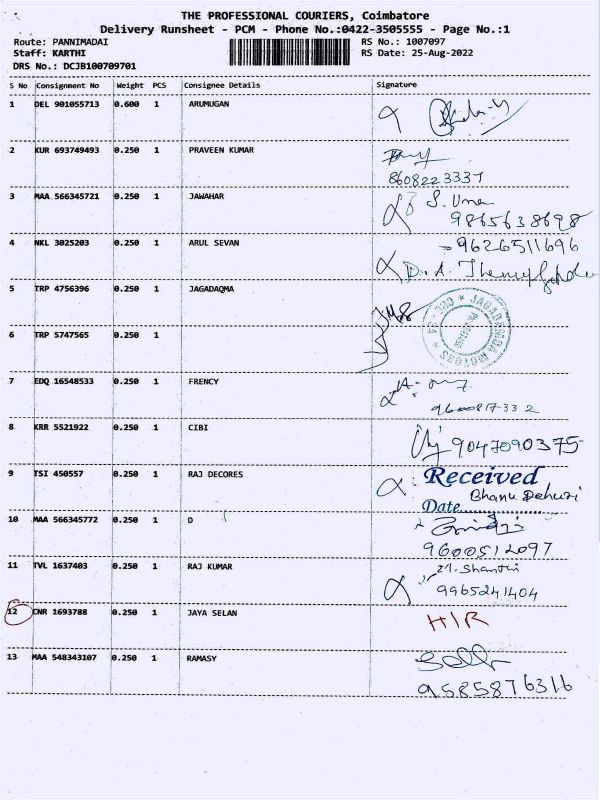 THE PROFESSIONAL COURIERS, Coimbatore
Delivery Runsheet - PCM - Phone No.:0422-3505555 - Page No.:1
Route: PANNIMADAI RS No.: 1007097
Staff: KARTHI RS Date: 25-Aug-2022
DRS No.: DCJB100709701
S No Consignment No Weight PCS Consignee Details Signature
1 DEL 901055713 0.600 1 ARUMUGAN
2 KUR 693749493 0.250 1 PRAVEEN KUMAR
8608223337
3 MAA 566345721 0.250 1 JAWAHAR S. Uma
9865638698
4 NKL 3025203 0.250 1 ARUL SEVAN 9626511696
D. A.
5 TRP 4756396 0.250 1 JAGADAQMA
JAGADAMBA MOTORS
6 TRP 5747565 0.250 1
7 EDQ 16548533 0.250 1 FRENCY
9600817332
8 KRR 5521922 0.250 1 CIBI
9047090375
9 TSI 450557 0.250 1 RAJ DECORES Received
Bhanu Dehuri
Date
10 MAA 566345772 0.250 1 D
9600512097
11 TVL 1637403 0.250 1 RAJ KUMAR M. Shanthi
9965241404
12 CNR 1693788 0.250 1 JAYA SELAN H/R
13 MAA 548343107 0.250 1 RAMASY
9585876316